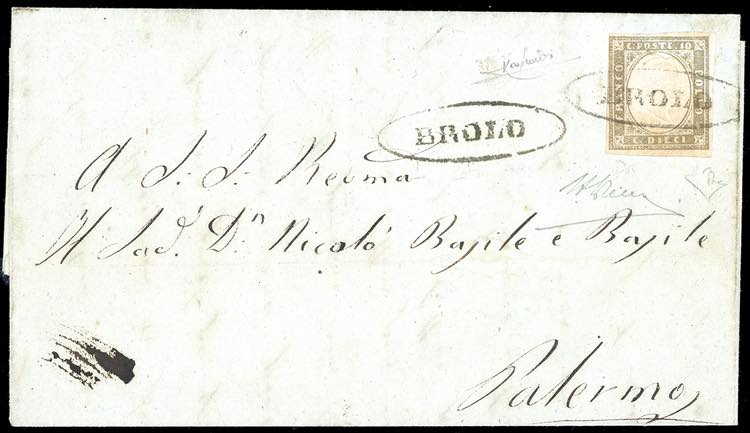 C. POSTE. 10
FRANCO
BOLLO
C. DIECI
BROLO
BROLO
A S. S. Reoma
Il Sad. Dn. Nicolò Basile e Basile
Palermo